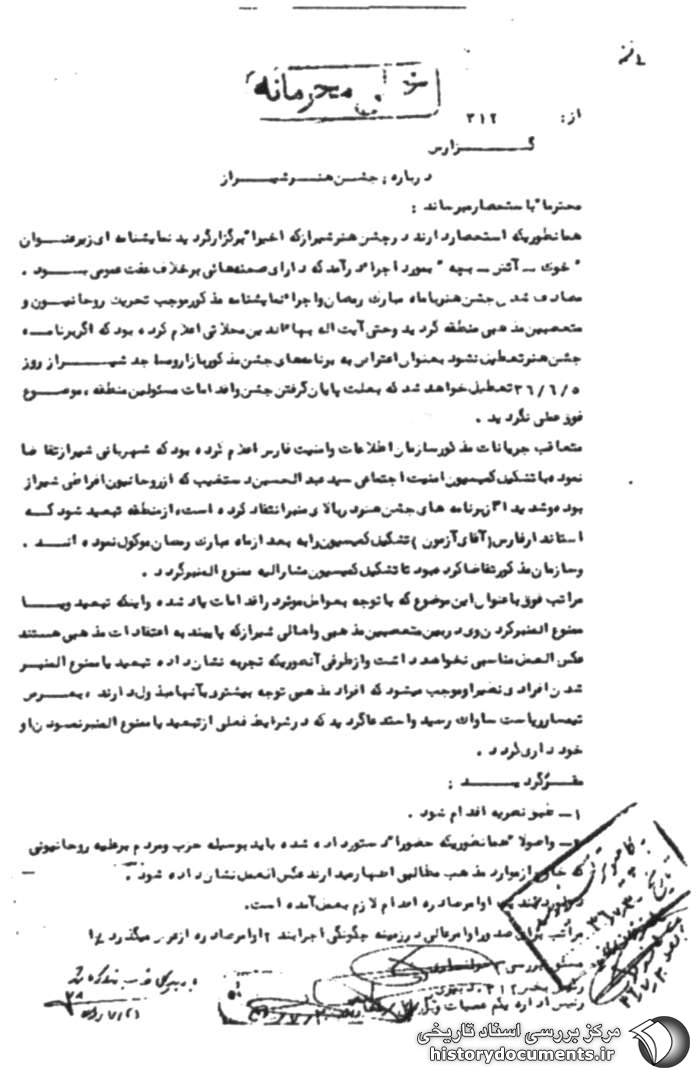 خیلی محرمانه
از: ۳۱۲
گـــزارش
درباره: جشن هنر شیراز
محترما" باستحضار میرساند :
همانطوریکه استحضار دارند در جشن هنر شیراز که اخیرا" برگزار گردید نمایشنامه ای زیر عنوان
" خوک ــ آتش ــ بچه " بمورد اجراء درآمد که دارای صحنه‌هائی برخلاف عفت عمومی بـــود .
مصادف شدن جشن هنر با ماه مبارک رمضان و اجراء نمایشنامه مذکور موجب تحریک روحانیون و
متعصبین مذهبی منطقه گردید و حتی آیت اله بهاءالدین محلاتی اعلام کرده بود که اگر برنامـــه
جشن هنر تعطیل نشود بعنوان اعتراض به برنامه‌های جشن مذکور بازار و مساجد شیــــراز از روز
۳۶/۶/۵ تعطیل خواهد شد که بعلت پایان گرفتن جشن و اقدامات مسئولین منطقه ، موضوع
فوق عملی نگردید .
متعاقب جریانات مذکور سازمان اطلاعات و امنیت فارس اعلام کرده بود که شهربانی شیراز تقاضا
نموده با تشکیل کمیسیون امنیت اجتماعی سید عبدالحسین دستغیب که از روحانیون افراطی شیراز
بوده و شدیدا" از برنامه های جشن هنر در بالای منبر انتقاد کرده است، از منطقه تبعید شود کـــه
استاندار فارس (آقای آزمون ) تشکیل کمیسیون را به بعد از ماه مبارک رمضان موکول نموده انـــد .
و سازمان مذکور تقاضا کرده بود تا تشکیل کمیسیون مشارالیه ممنوع المنبر گردد .
مراتب فوق با عنوان این موضوع که با توجه بعوامل موثر در اقدامات یاد شده و اینکه تبعید ویـــا
ممنوع المنبر کردن وی در بین متعصبین مذهبی و اهالی شیراز که پایبند به اعتقادات مذهبی هستند
عکس العمل مناسبی نخواهد داشت و از طرفی آنطوریکه تجربه نشان داده تبعید یا ممنوع المنبـــر
شدن افرادی نظیر او موجب میشود که افراد مذهبی توجه بیشتری بآنها مبذول دارند ، بعـــرض
تیمسار ریاست ساواک رسید و استدعا گردید که در شرایط فعلی از تبعید یا ممنوع المنبر نمـودن او
خودداری گردد .
مقـــرر گردیـــد :
۱ــ طبق نظریه اقدام شود .
۲ــ و اصولا" همانطوریکه حضورا" دستور داده شده باید بوسیله حزب و مردم بر علیه روحانیونی
که خارج از موارد مذهب مطالبی اظهار میدارند عکس العمل نشان داده شود .
در مورد بند یک اوامر صادره اقدام لازم بعمل آمده است.
مراتب برای صدور اوامر عالی در زمینه چگونگی اجرا بند ۲ اوامر صادره از عرض میگذرد
مسئول بررسی
رئیس بخش ۳۱۲
رئیس اداره یکم عملیات و بررسی
مرکز بررسی اسناد تاریخی
historydocuments.ir